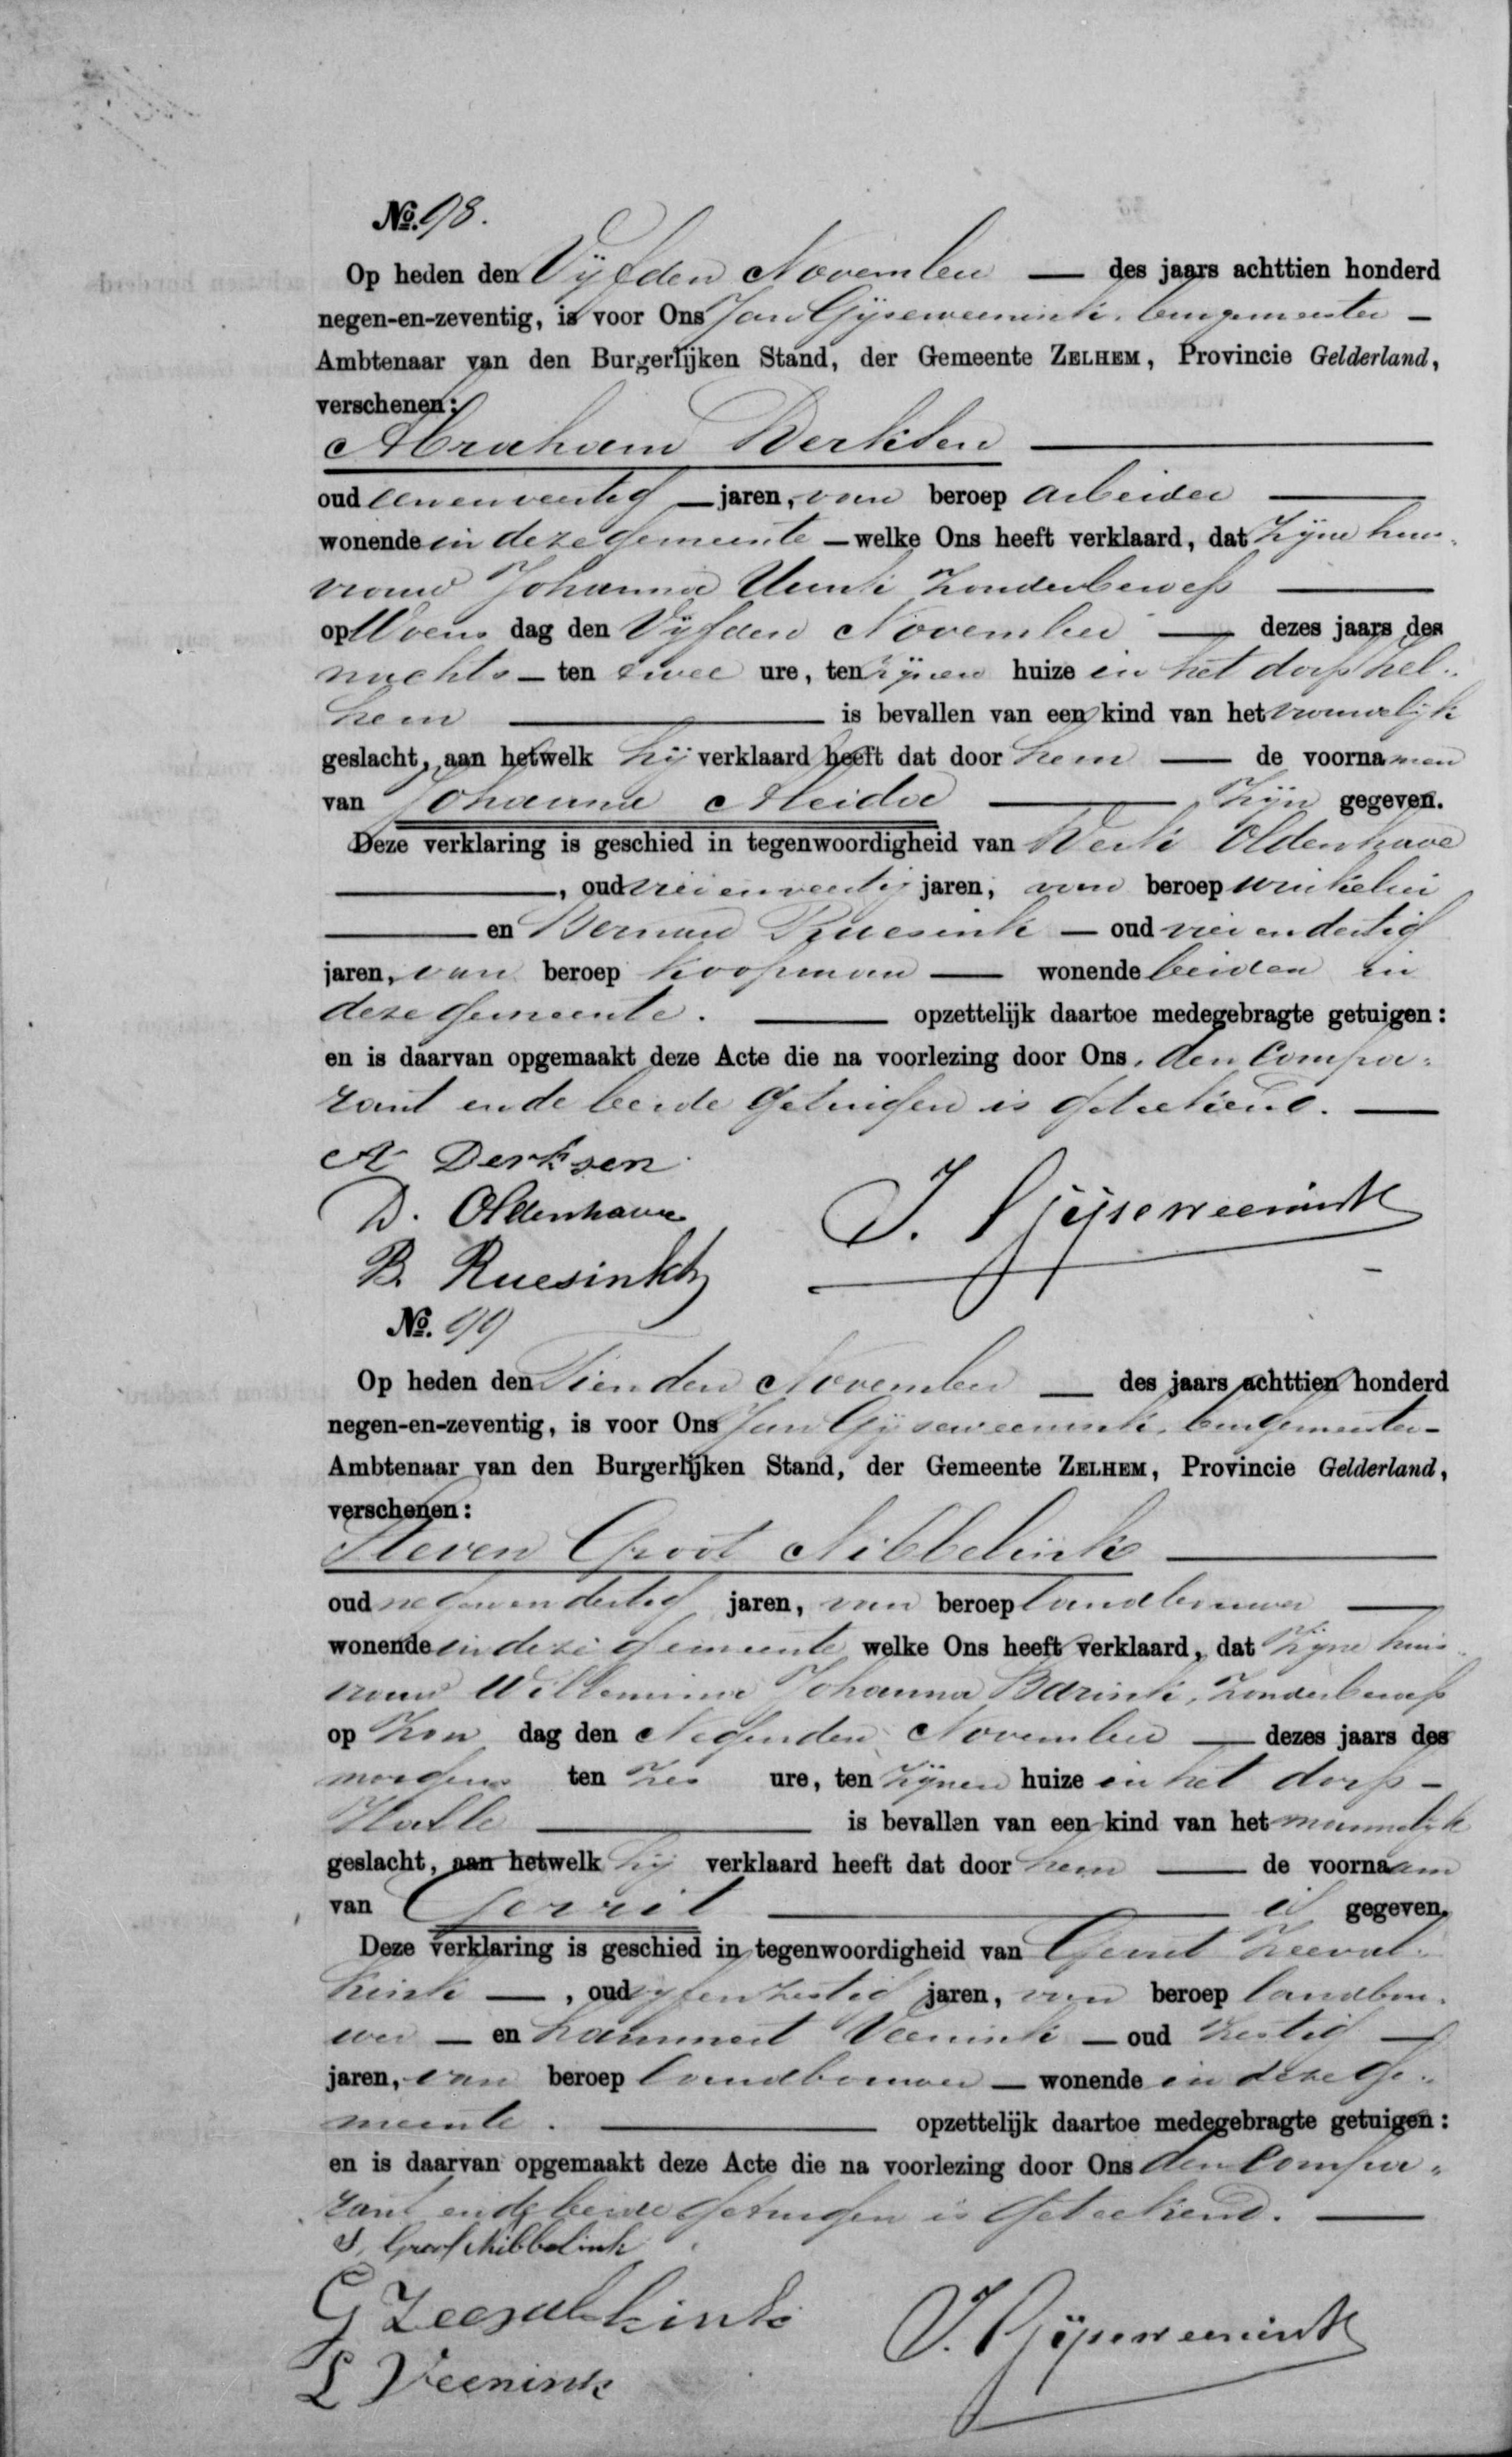 No. 98.
Op heden den Vijfden November — des jaars achttien honderd
negen-en-zeventig, is voor Ons Jan Gijseweenink, burgemeester —
Ambtenaar van den Burgerlijken Stand, der Gemeente ZELHEM, Provincie Gelderland,
verschenen:
Abraham Derksen —
oud eenenveertig — jaren, van beroep arbeider —
wonende in deze gemeente — welke Ons heeft verklaard, dat zijne huis-
vrouw Johanna zonder beroep —
op Woens dag den Vijfden November — dezes jaars des
nachts — ten twee ure, ten zijnen huize in het dorp Zel-
hem — is bevallen van een kind van het vrouwelijk
geslacht, aan hetwelk hij verklaard heeft dat door hem — de voornamen
van Johanna Aleida — zijn gegeven.
Deze verklaring is geschied in tegenwoordigheid van Derk Oldenhave
—, oud vierenveertig jaren, van beroep winkelier
— en Bernard Ruesink — oud vierendertig
jaren, van beroep koopman — wonende beiden in
deze gemeente. — opzettelijk daartoe medegebragte getuigen:
en is daarvan opgemaakt deze Acte die na voorlezing door Ons, den Compa-
rant en de beide getuigen is geteekend. —
A Derksen
D. Oldenhave
J. Gijseweenink
B. Ruesink
No. 99
Op heden den Tienden November — des jaars achttien honderd
negen-en-zeventig, is voor Ons Jan Gijseweenink, burgemeester —
Ambtenaar van den Burgerlijken Stand, der Gemeente ZELHEM, Provincie Gelderland,
verschenen:
Steven Groot Nibbelink —
oud negenendertig jaren, van beroep landbouwer —
wonende in deze gemeente welke Ons heeft verklaard, dat zijne huis-
vrouw Willemina Johanna Barink, zonder beroep
op Zon dag den Negenden November — dezes jaars des
morgens ten zes ure, ten zijnen huize in het dorp —
Halle — is bevallen van een kind van het mannelijk
geslacht, aan hetwelk hij verklaard heeft dat door hem — de voornaam
van Gerrit — is gegeven.
Deze verklaring is geschied in tegenwoordigheid van Gerrit Zeeval-
kink —, oud vijfenzestig jaren, van beroep landbou-
wer — en Lammert Veenink — oud zestig —
jaren, van beroep landbouwer — wonende in deze ge-
meente. — opzettelijk daartoe medegebragte getuigen:
en is daarvan opgemaakt deze Acte die na voorlezing door Ons den Compa-
rant en de beide getuigen is geteekend. —
S, Groot Nibbelink
G Zeevalkink
J. Gijseweenink
L Veenink